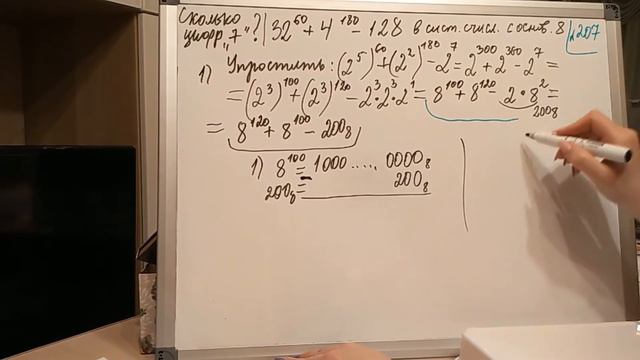 Сколько цифр „7"? | 32⁶⁰ + 4¹⁸⁰ − 128 в сист. счисл. с основ. 8 | 207
1) Упростить: (2⁵)⁶⁰ + (2²)¹⁸⁰ − 2⁷ = 2³⁰⁰ + 2³⁶⁰ − 2⁷ =
= (2³)¹⁰⁰ + (2³)¹²⁰ − 2³·2³·2¹ = 8¹⁰⁰ + 8¹²⁰ − 2·8² =
200₈
= 8¹²⁰ + 8¹⁰⁰ − 200₈
1) 8¹⁰⁰ = 1000.....0000₈
200₈ = 200₈